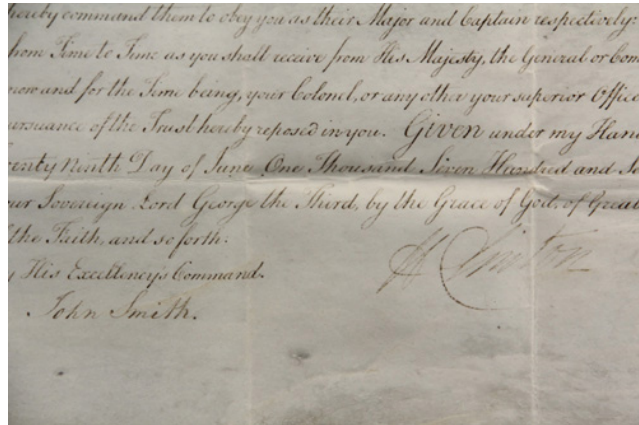 hereby command them to obey you as their Major and Captain respectively:
from Time to Time as you shall receive from His Majesty, the General or Com
now and for the Time being, your Colonel, or any other your superior Office
ursuance of the Trust hereby reposed in you. Given under my Han
wenty Ninth Day of June One Thousand Seven Hundred and Se
our Sovereign Lord George the Third, by the Grace of God, of Grea
f the Faith, and so forth:
y His Excellency's Command.
John Smith.
H Clinton